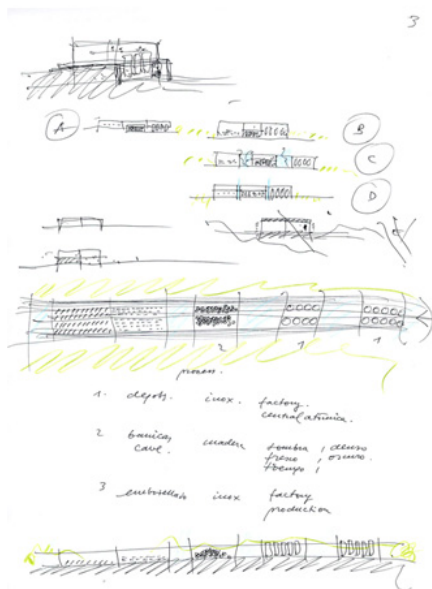 3
A
B
C
D
2 1 1
process.
1. depots. inox. factory.
central atomica.
2 barricas madera sombra / denso
cave. fresco / oscuro.
tiempo /
3 embotellado inox factory
production